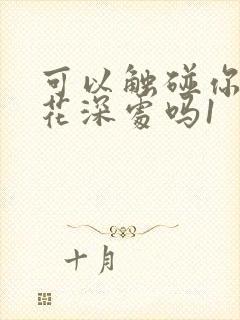 可以触碰你
花深处吗1
十月